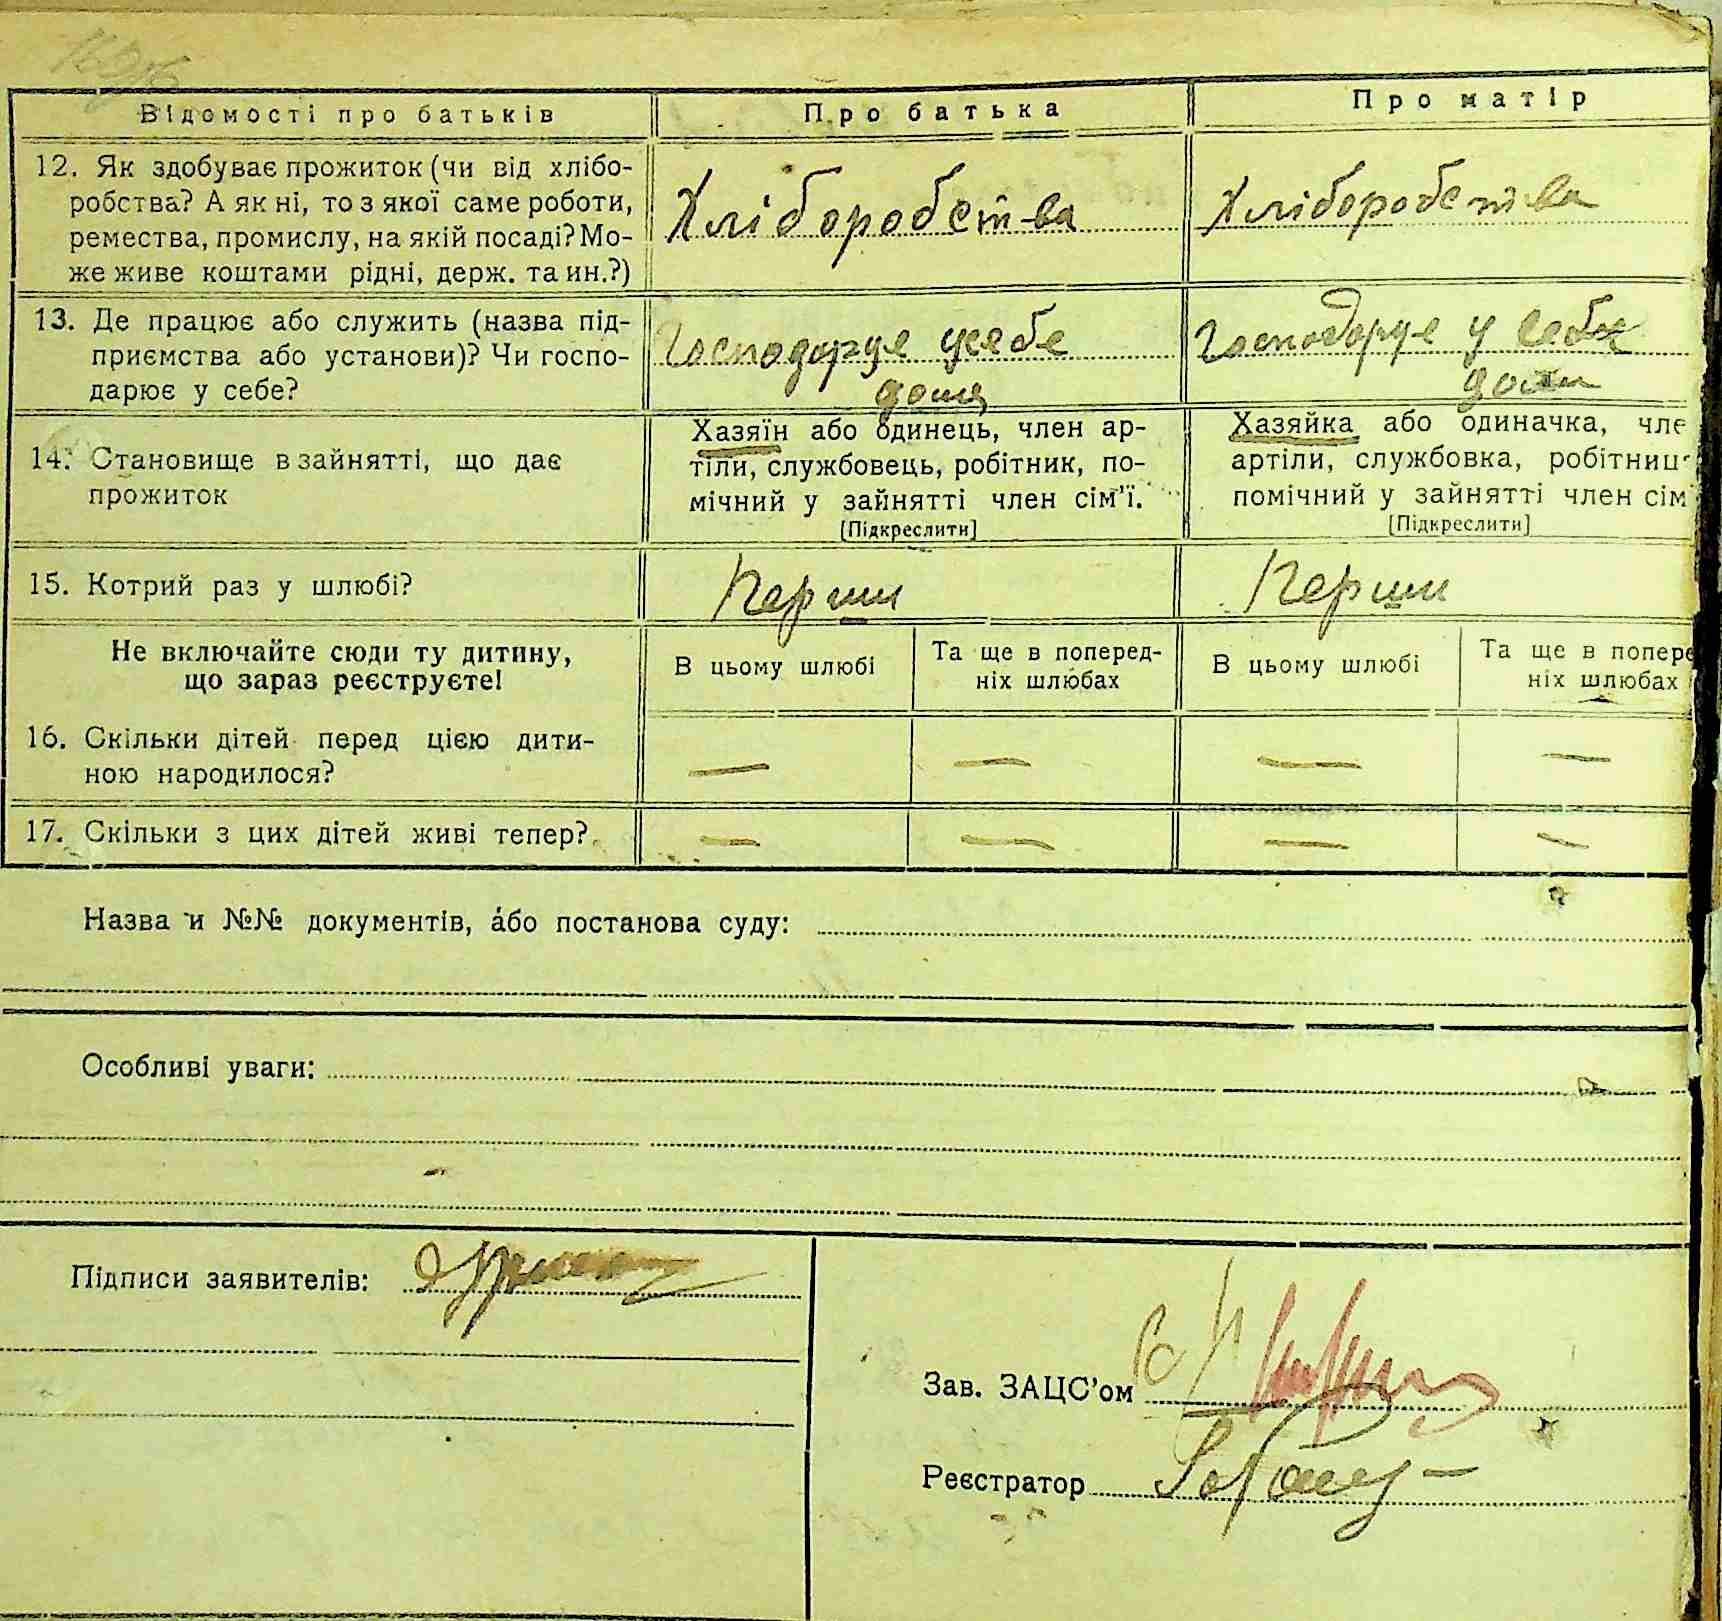 Відомості про батьків
Про батька
Про матір
12. Як здобуває прожиток (чи від хлібо-
робства? А як ні, то з якої саме роботи,
ремества, промислу, на якій посаді? Мо-
же живе коштами рідні, держ. та ин.?)
Хліборобства
Хліборобства
13. Де працює або служить (назва під-
приємства або установи)? Чи госпо-
дарює у себе?
Господарує у себе
дома
Господарує у себе
дома
14. Становище в зайнятті, що дає
прожиток
Хазяїн або одинець, член ар-
тіли, службовець, робітник, по-
мічний у зайнятті член сім'ї.
[Підкреслити]
Хазяйка або одиначка, чле
артіли, службовка, робітниц
помічний у зайнятті член сім
[Підкреслити]
15. Котрий раз у шлюбі?
Перши
Перши
Не включайте сюди ту дитину,
що зараз реєструєте!
В цьому шлюбі
Та ще в поперед-
ніх шлюбах
В цьому шлюбі
Та ще в попере
ніх шлюбах
16. Скільки дітей перед цією дити-
ною народилося?
— — — —
17. Скільки з цих дітей живі тепер?
— — — —
Назва и №№ документів, або постанова суду:
Особливі уваги:
Підписи заявителів:
Зав. ЗАЦС'ом
Реєстратор